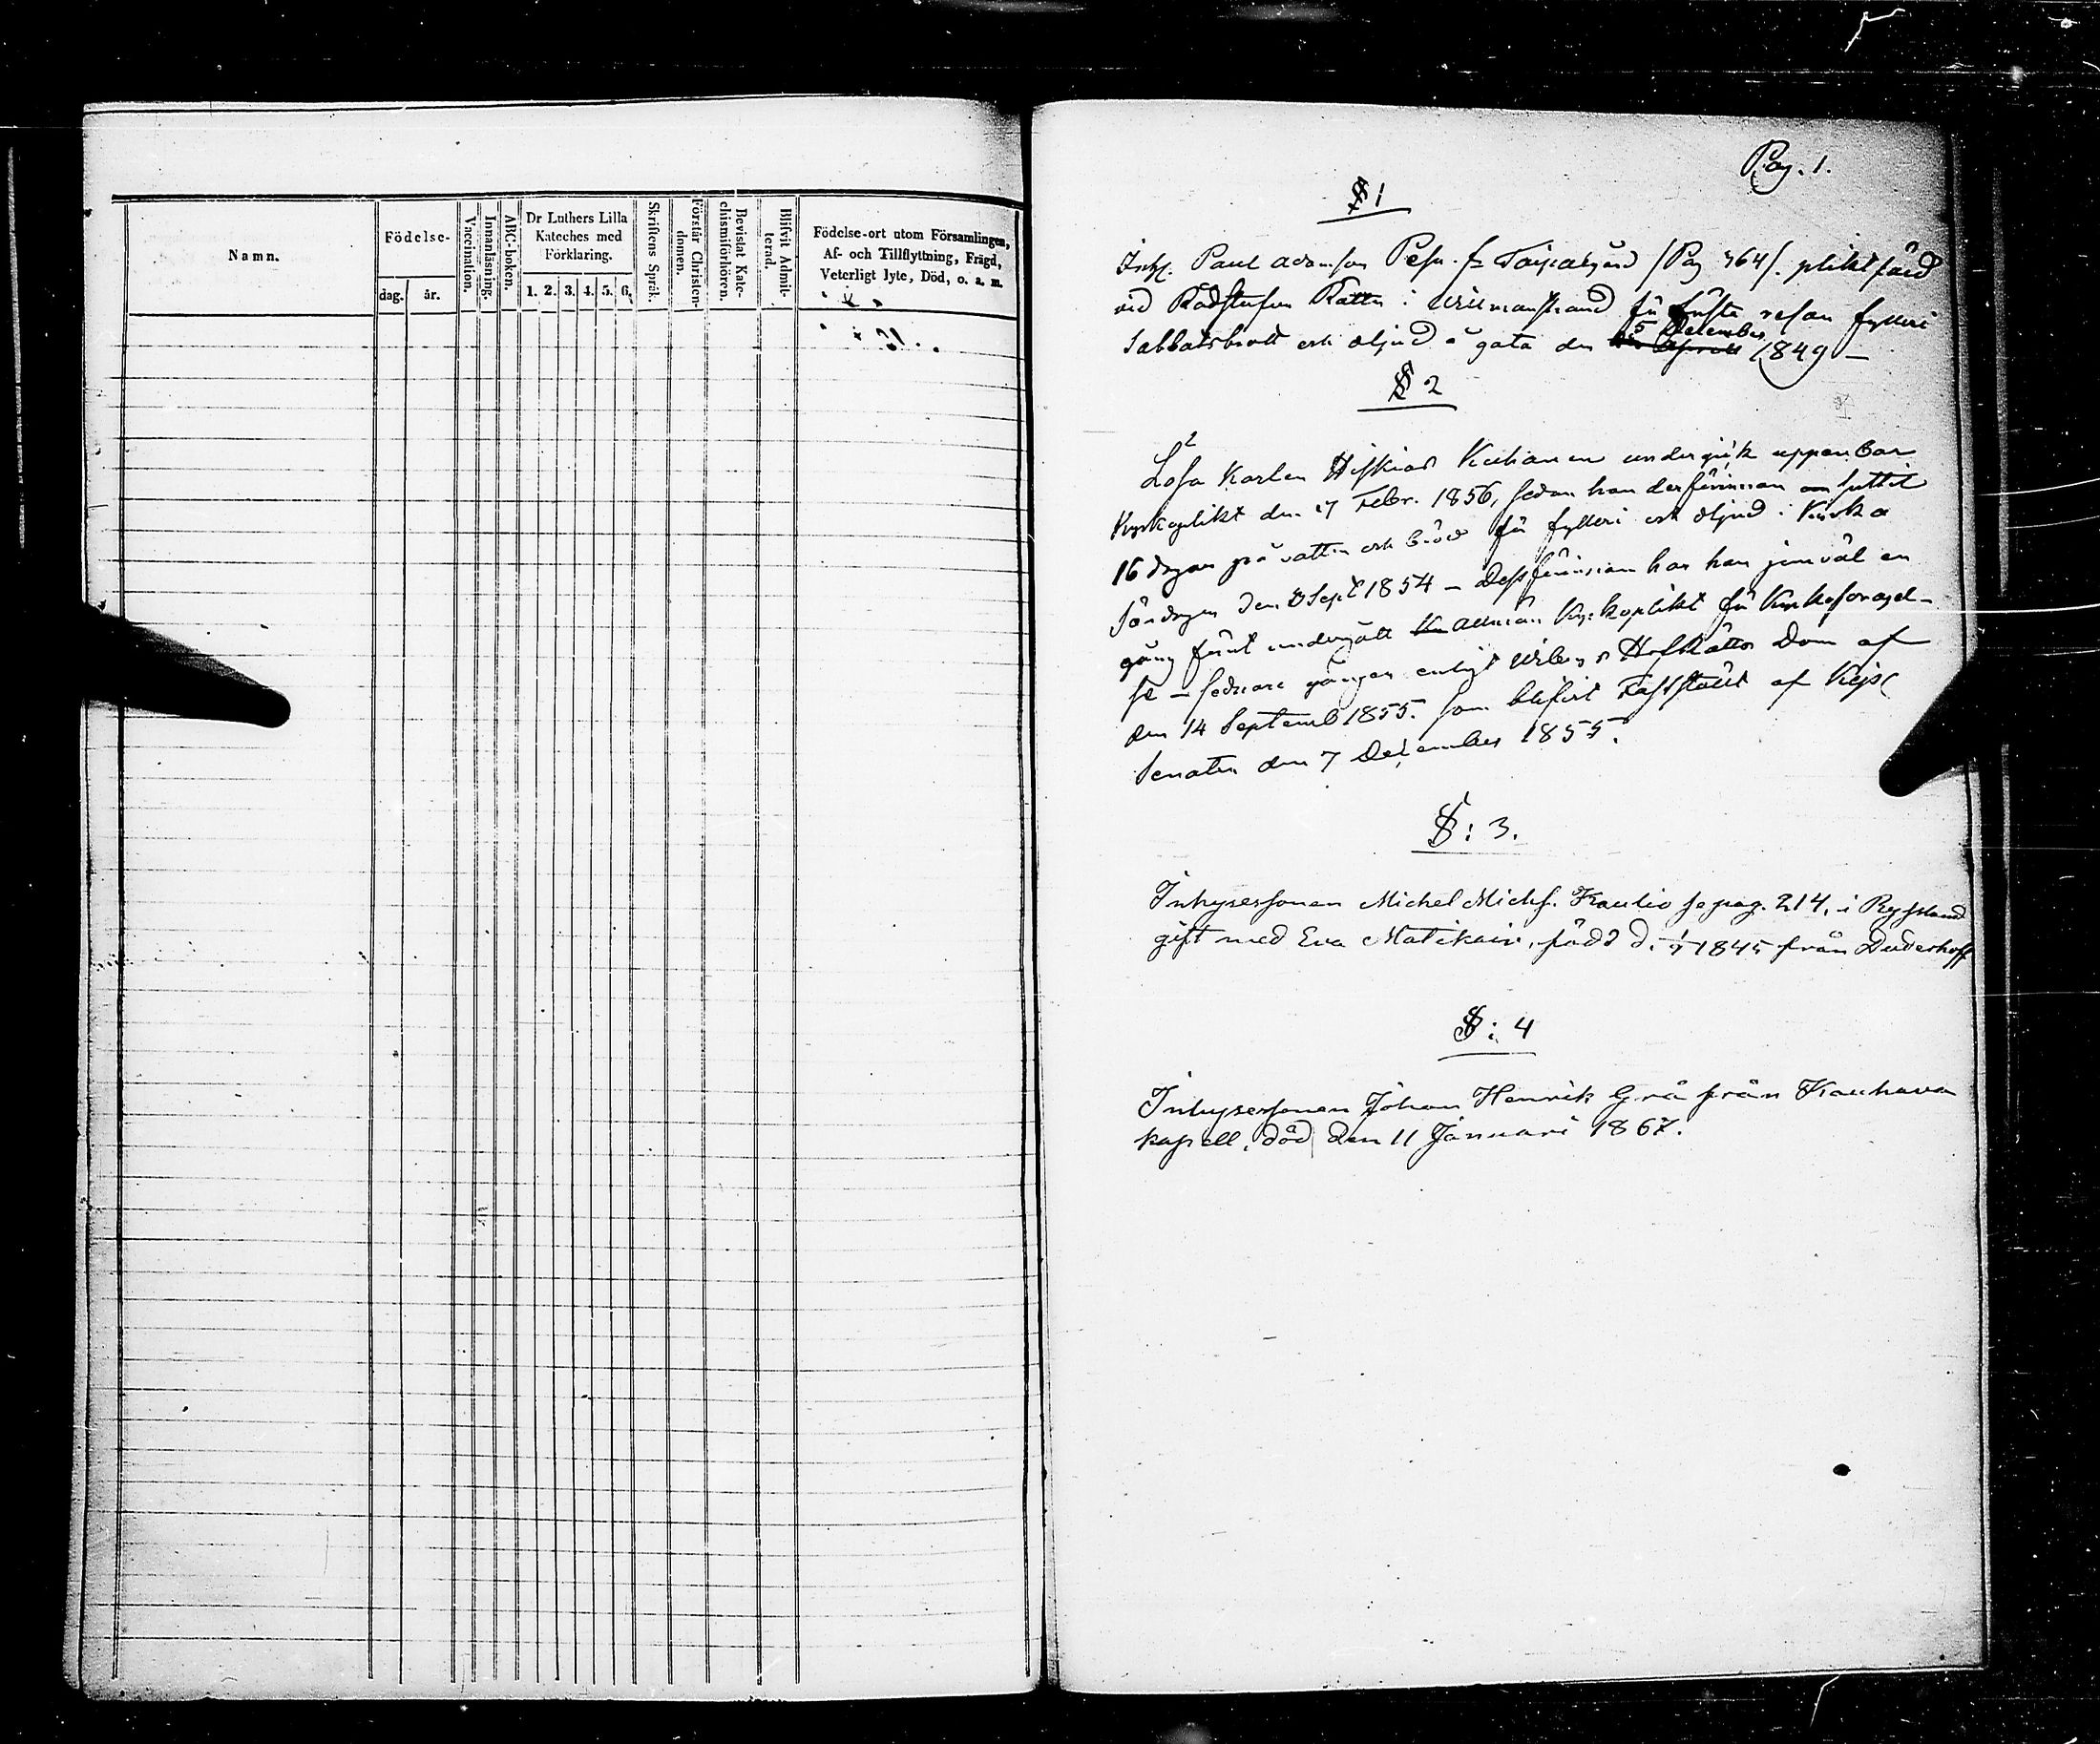 Namn.
Födelse-
dag. år.
Vaccination.
Innanläsning.
ABC-boken.
Dr Luthers Lilla
Kateches med
Förklaring.
1. 2. 3. 4. 5. 6.
Skriftens Språk.
Förstår Christen-
domen.
Bevistat Kate-
chismiförhören.
Blifvit Admit-
terad.
Födelse-ort utom Församlingen,
Af- och Tillflyttning, Frägd,
Veterligt lyte, Död, o. s. m.
Pag. 1.
§ 1
Inhs. Paul Adamsson /Pag 364/. pliktfäld
vid Rådstufvu Rätten i Willmanstrand för första resan fylleri
5 December
Sabbatsbrott och oljud å gata den 1849 –
§ 2
Lösa Karlen Hiskias undergick uppenbar
Kyrkoplikt den 17 Febr. 1856, sedan han derförinnan suttit
16 dygn på vatten och bröd för fylleri och oljud i Kyrka
Söndagen den 3 Sept 1854 – Dessförinnan har han jemväl en
gång förut undergått allmän Kyrkoplikt för
se – sednare gången enligt Wiborgs HofRätts Dom af
den 14 Septemb 1855. som blifvit Fastställt af Kejs
Senaten den 7 December 1855.
§: 3.
Inhysessonen Michel Michs. se pag. 214, i Ryssland
gift med Eva Matikain, född d. 1/7 1845 från Duderhoff
§: 4
Inhysessonen Johan Henrik Grå från Kauhava
kapell, död den 11 Januari 1867.